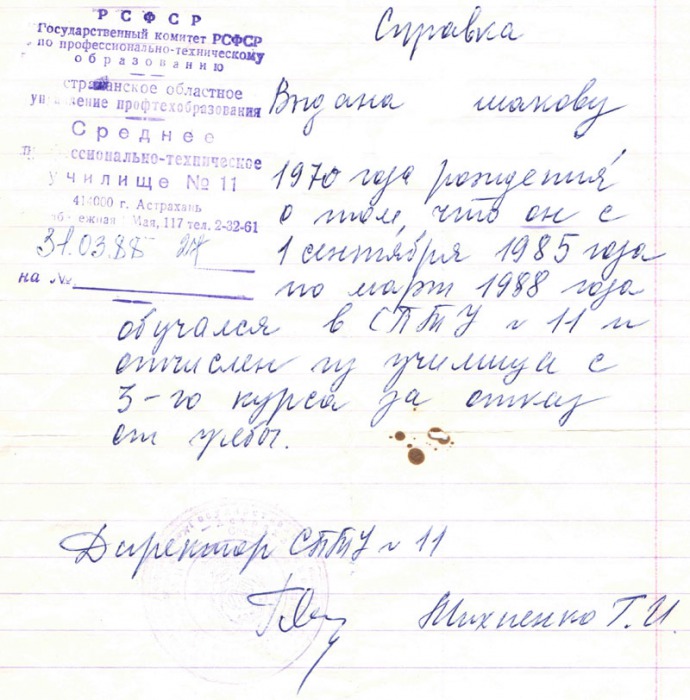 РСФСР
Государственный комитет РСФСР
по профессионально-техническому
образованию
страханское областное
управление профтехобразования
Среднее
ссионально-техническое
училище № 11
414000 г. Астрахань
Мая, 117 тел. 2-32-61
31.03.88 27
на №
Справка
Выдана
1970 года рождения
о том, что он с
1 сентября 1985 года
по март 1988 года
обучался в СПТУ № 11 и
отчислен из училища с
3-го курса за отказ
от учебы.
Директор СПТУ № 11
Т. И.